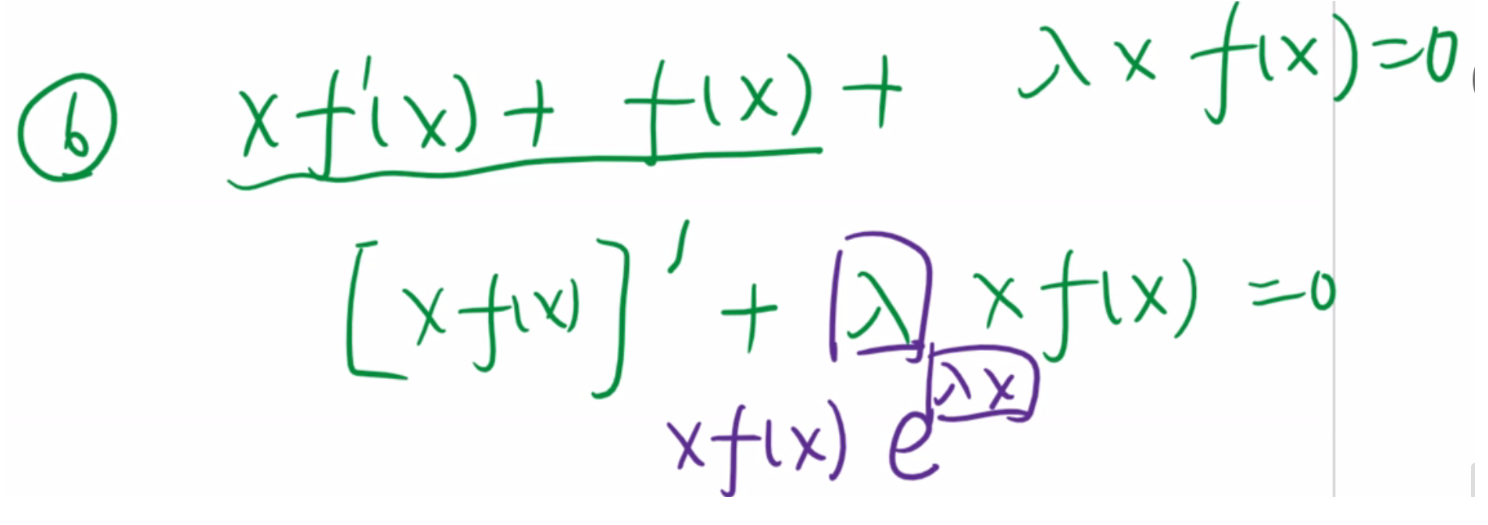 ⑥ xf'(x) + f(x) + λxf(x)=0
[xf(x)]' + λxf(x)=0
xf(x)e^{λx}